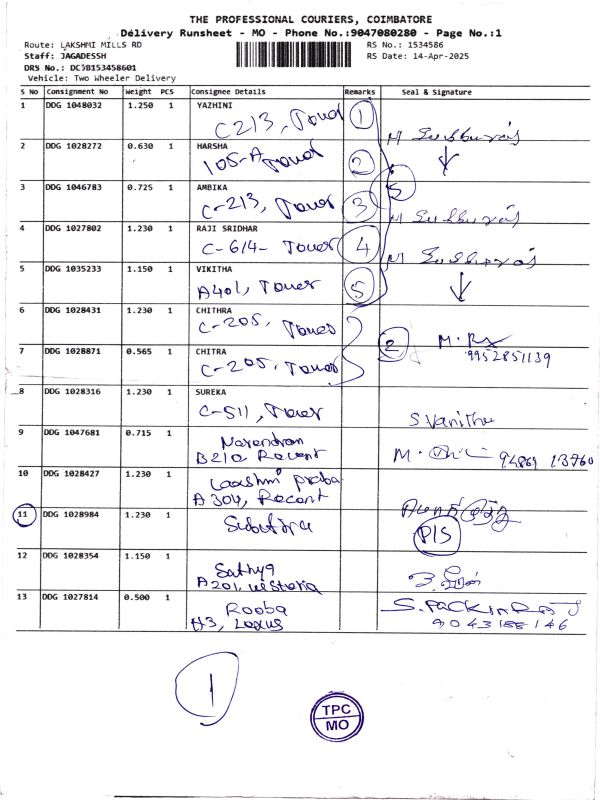 THE PROFESSIONAL COURIERS, COIMBATORE
Delivery Runsheet - MO - Phone No.:9047080280 - Page No.:1
Route: LAKSHMI MILLS RD RS No.: 1534586
Staff: JAGADESSH RS Date: 14-Apr-2025
DRS No.: DC5B153458601
Vehicle: Two Wheeler Delivery
S No Consignment No Weight PCS Consignee Details Remarks Seal & Signature
1 DDG 1048032 1.250 1 YAZHINI
C213, Tower 1
2 DDG 1028272 0.630 1 HARSHA
105-A Tower 2
5
3 DDG 1046783 0.725 1 AMBIKA
C-213, Tower 3
4 DDG 1027802 1.230 1 RAJI SRIDHAR
C-614- Tower 4
5 DDG 1035233 1.150 1 VIKITHA
A401, Tower 5
6 DDG 1028431 1.230 1 CHITHRA
C-205, Tower
2 M.
7 DDG 1028871 0.565 1 CHITRA
9952851139
C-205, Tower
8 DDG 1028316 1.230 1 SUREKA
C-511, Tower S Vanitha
9 DDG 1047681 0.715 1 Narendran
B210 Recent M.
10 DDG 1028427 1.230 1 Laxshmi praba
A 304, Recent
11 DDG 1028984 1.230 1
P/S
12 DDG 1028354 1.150 1 Sathya
A201,
13 DDG 1027814 0.500 1 Rooba
H3, Lexus
9043188146
1
TPC
MO